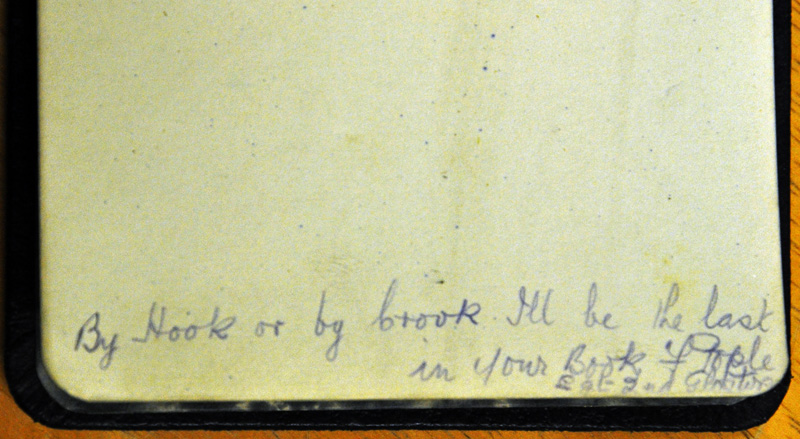 By Hook or by brook I'll be the last
in your Book